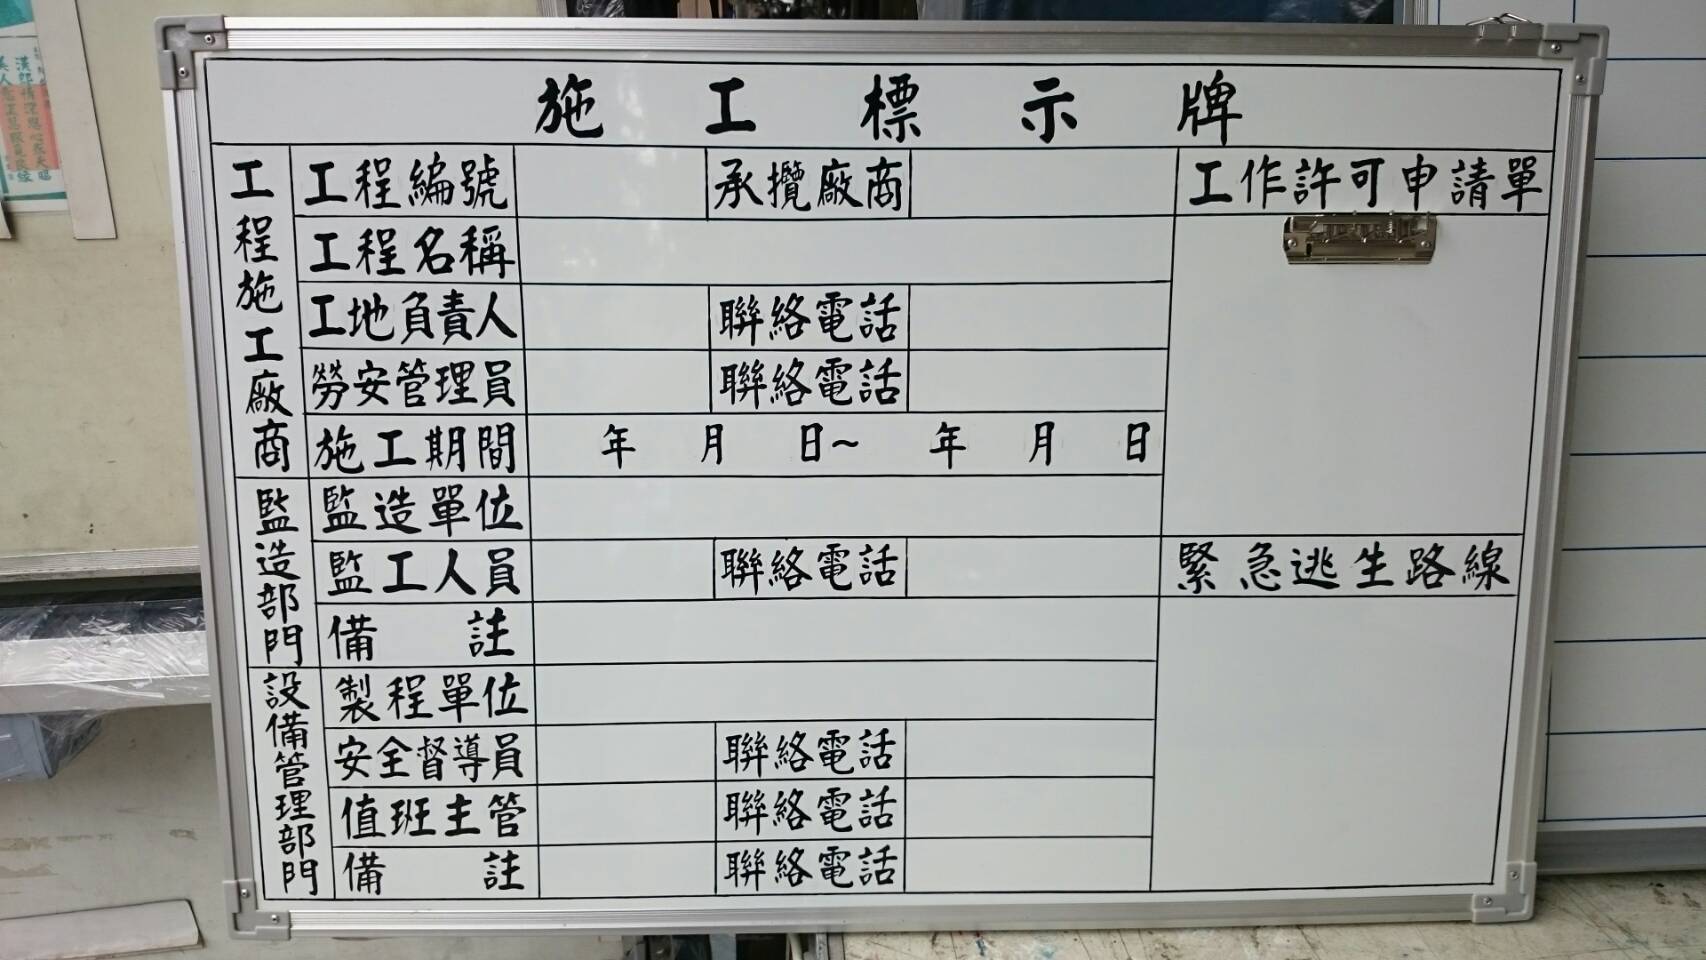 施工標示牌
工程施工廠商
工程編號 承攬廠商 工作許可申請單
工程名稱
工地負責人 聯絡電話
勞安管理員 聯絡電話
施工期間 年 月 日~ 年 月 日
監造部門
監造單位
監工人員 聯絡電話 緊急逃生路線
備註
設備管理部門
製程單位
安全督導員 聯絡電話
值班主管 聯絡電話
備註 聯絡電話